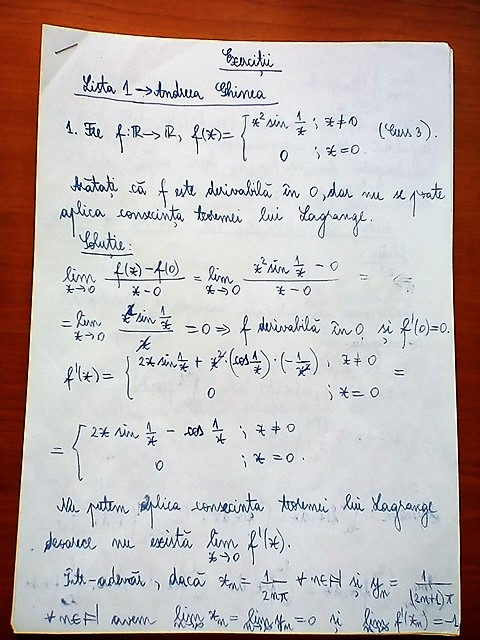 Exerciții
Lista 1 → Andreea Ghinea
1. Fie f: ℝ → ℝ, f(x) = { x² sin 1/x ; x ≠ 0 (Curs 3).
0 ; x = 0
Arătați că f este derivabilă în 0, dar nu se poate
aplica consecința teoremei lui Lagrange.
Soluție:
lim x→0 (f(x) − f(0))/(x − 0) = lim x→0 (x² sin 1/x − 0)/(x − 0) =
= lim x→0 (x² sin 1/x)/x = 0 ⇒ f derivabilă în 0 și f'(0) = 0.
f'(x) = { 2x sin 1/x + x² · (cos 1/x) · (−1/x²) ; x ≠ 0 =
0 ; x = 0
= { 2x sin 1/x − cos 1/x ; x ≠ 0
0 ; x = 0.
Nu putem aplica consecința teoremei lui Lagrange
deoarece nu există lim x→0 f'(x).
Într-adevăr, dacă xₙ = 1/(2nπ) ∀ n∈ℕ și yₙ = 1/((2n+1)π)
∀ n∈ℕ avem lim xₙ = lim yₙ = 0 și lim f'(xₙ) = −1